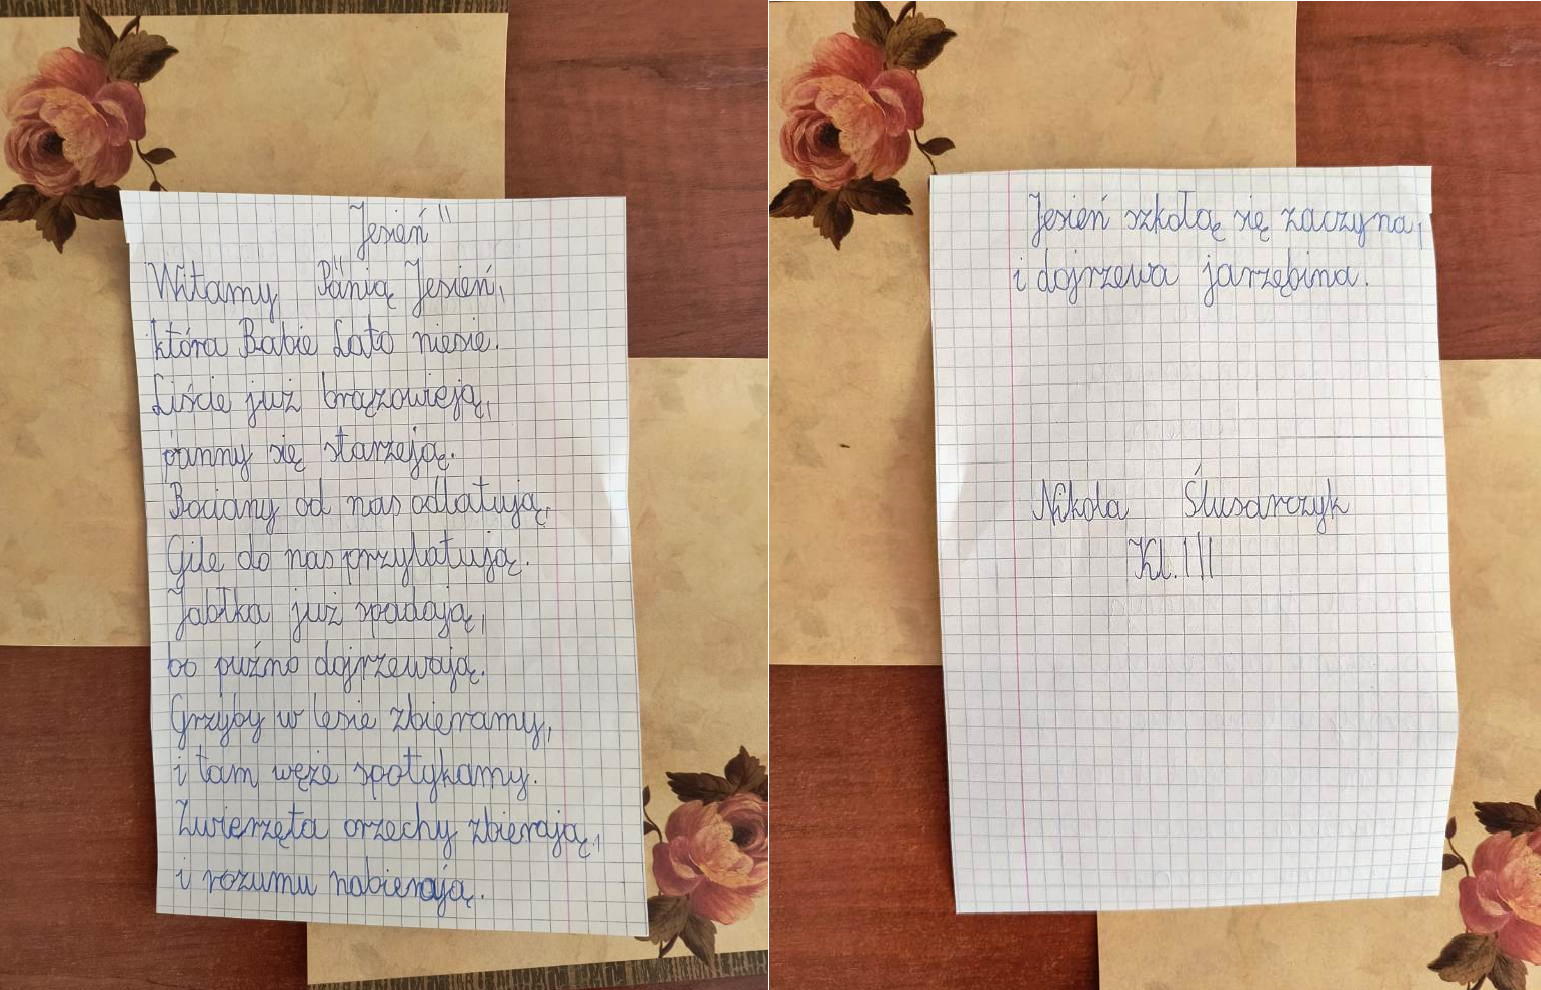 Jesień"
Witamy "Panią Jesień,
która Babie Lato niesie.
Liście już brązowieją,
panny się starzeją.
Bociany od nas odlatują,
Gile do nas przylatują.
Jabłka już spadają,
bo puźno dojrzewają.
Grzyby w lesie zbieramy,
i tam węże spotykamy.
Zwierzęta orzechy zbierają,
i rozumu nabierają.
Jesień szkołą się zaczyna,
i dojrzewa jarzębina.
Nikola Ślusarczyk
Kl. III